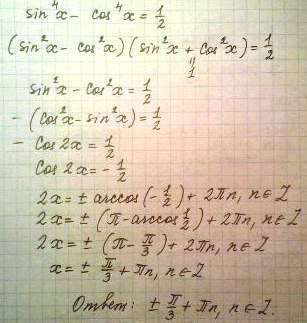 sin⁴x - cos⁴x = 1/2
(sin²x - cos²x)(sin²x + cos²x) = 1/2
"
1
sin²x - cos²x = 1/2
- (cos²x - sin²x) = 1/2
- cos 2x = 1/2
cos 2x = - 1/2
2x = ± arccos(-1/2) + 2πn, n∈Z
2x = ± (π - arccos 1/2) + 2πn, n∈Z
2x = ± (π - π/3) + 2πn, n∈Z
x = ± π/3 + πn, n∈Z
Ответ: ± π/3 + πn, n∈Z.